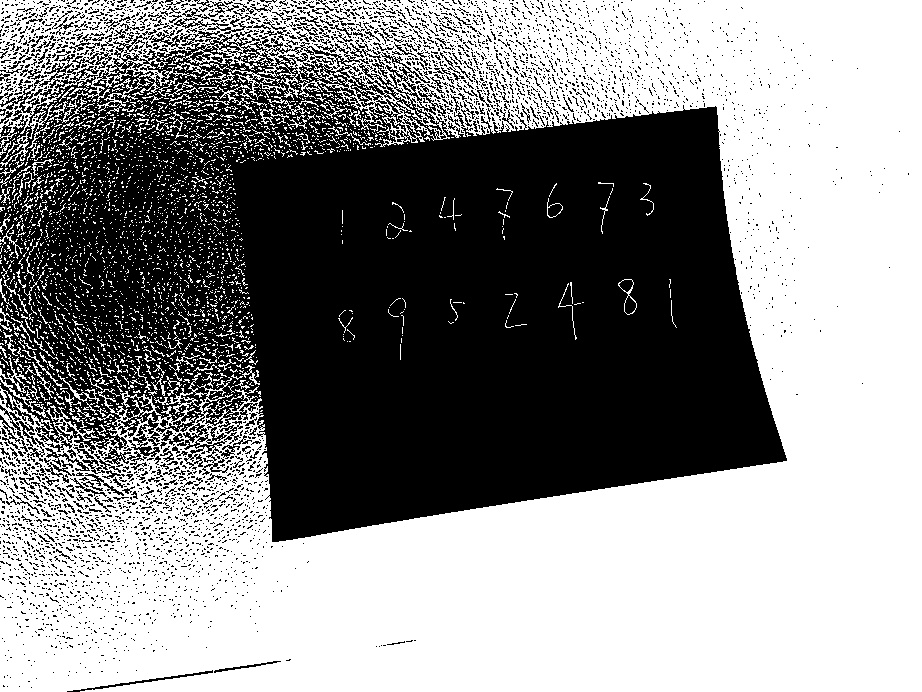 1247673
8952481